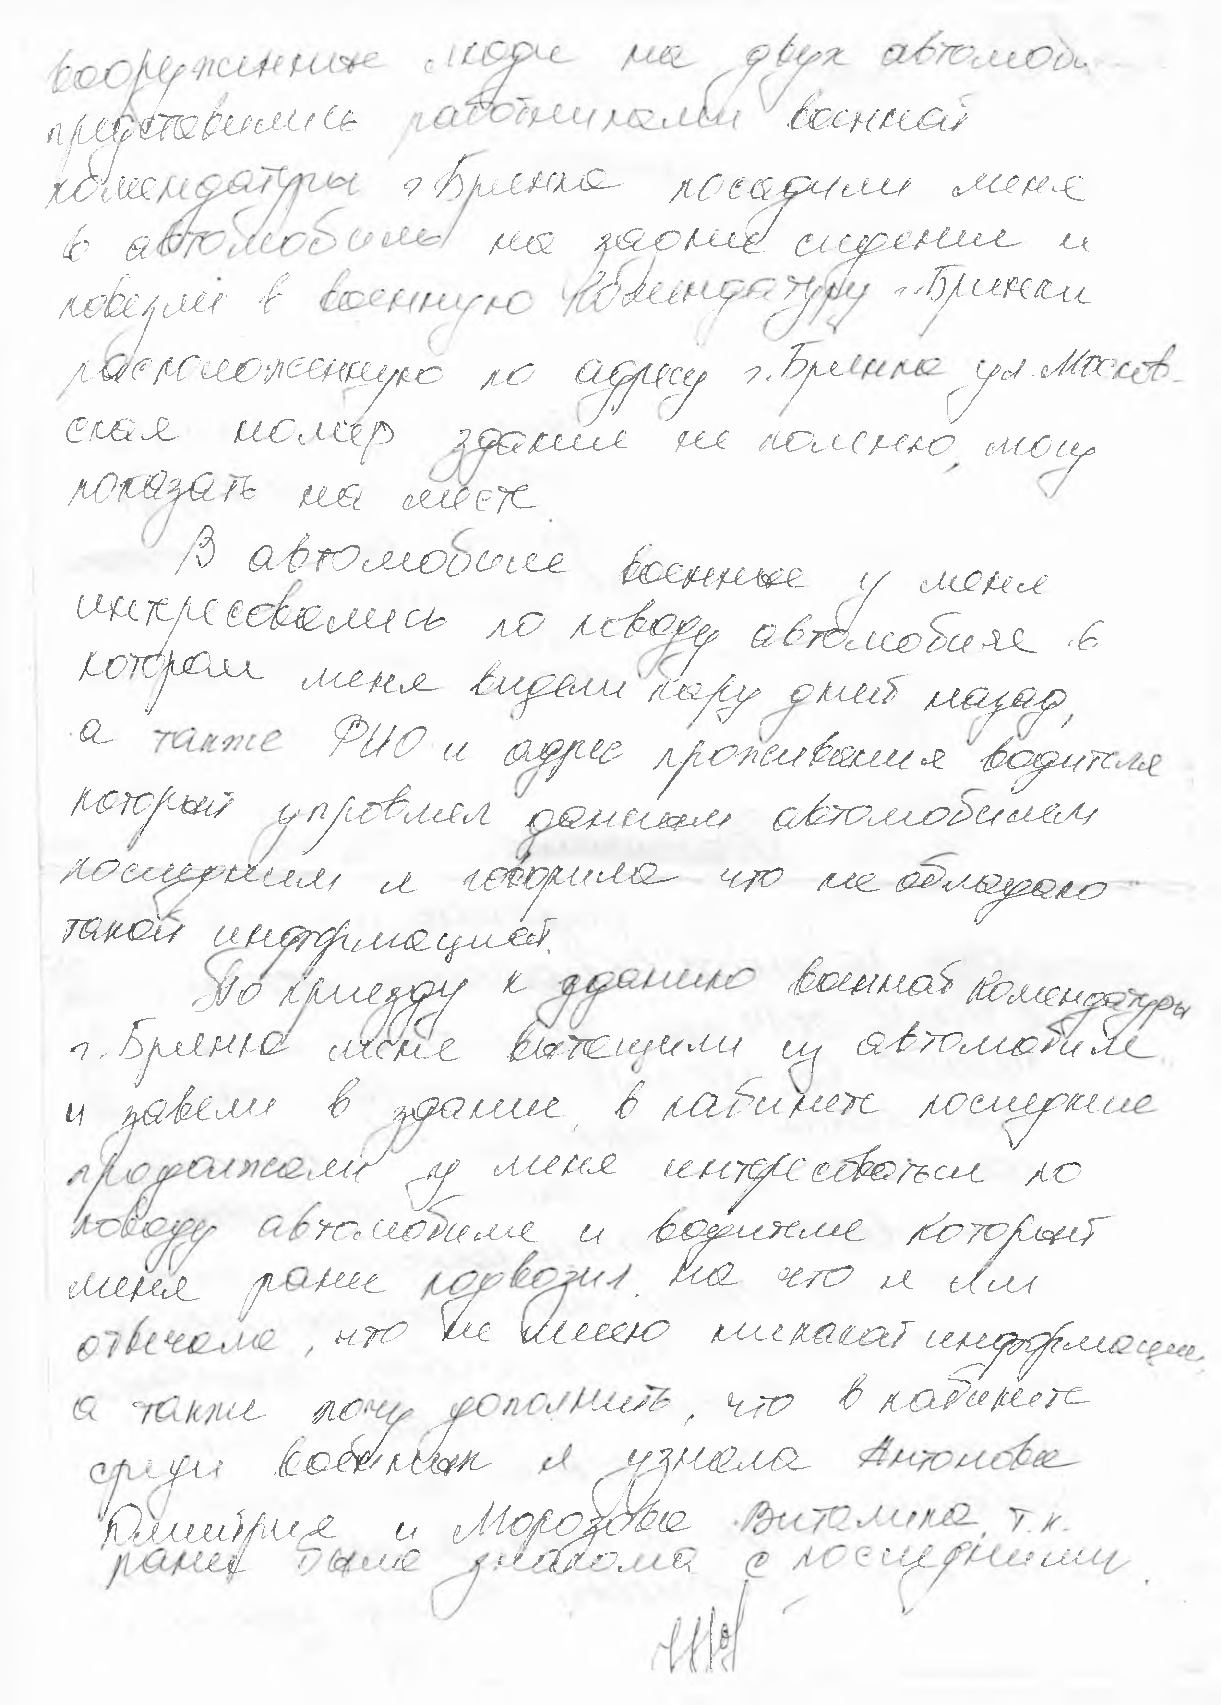 вооруженные люди на двух автомоби
представились работниками военной
комендатуры г Брянка посадили меня
в автомобиль на заднее сидение и
повезли в военную комендатуру г. Брянки
расположенную по адресу г. Брянка ул. Москов-
ская номер здания не помню, могу
показать на месте.
В автомобиле военные у меня
интересовались по поводу автомобиля в
котором меня видели пару дней назад,
а также ФИО и адрес проживания водителя
который управлял данным автомобилем
последним я говорила что не обладаю
такой информацией.
По приезду к зданию военной комендатуры
г. Брянка меня вытащили из автомобиля
и завели в здание, в кабинете последние
продолжали у меня интересоваться по
поводу автомобиля и водителя который
меня ранее подвозил. на что я им
отвечала, что не имею никакой информации,
а также хочу дополнить, что в кабинете
среди военных я узнала Антонова
Дмитрия и Морозова Виталика, т.к.
ранее была знакома с последними.